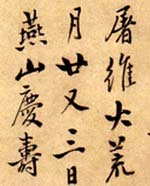 屠維大荒
月廿又三日
燕山慶壽